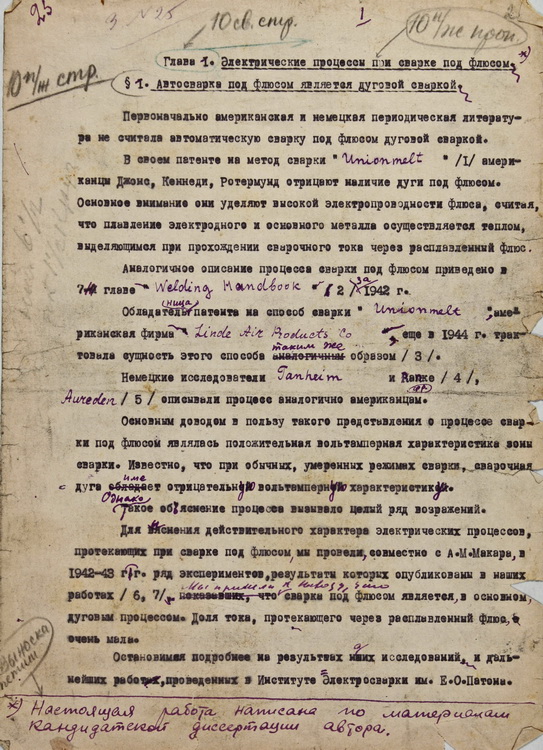 25
3 N 25
10 св. стр.
1
10 п/ж проп
10 п/ж стр.
Глава 1. Электрические процессы при сварке под флюсом *)
§ 1. Автосварка под флюсом является дуговой сваркой.
Первоначально американская и немецкая периодическая литерату-
ра не считала автоматическую сварку под флюсом дуговой сваркой.
В своем патенте на метод сварки "Unionmelt" /1/ амери-
канцы Джонс, Кеннеди, Ротермунд отрицают наличие дуги под флюсом.
Основное внимание они уделяют высокой электропроводности флюса, считая,
что плавление электродного и основного металла осуществляется теплом,
выделяющимся при прохождении сварочного тока через расплавленный флюс.
Аналогичное описание процесса сварки под флюсом приведено в
7 главе "Welding Handbook" /2/ за 1942 г.
Обладательница патента на способ сварки "Unionmelt", аме-
риканская фирма "Linde Air Products Co", еще в 1944 г. трак-
товала сущность этого способа аналогичным таким же образом /3/.
Немецкие исследователи Tanheim и Ранке /4/,
Aureden /5/ описывали процесс аналогично американцам.
Основным доводом в пользу такого представления о процессе свар-
ки под флюсом являлась положительная вольтамперная характеристика зоны
сварки. Известно, что при обычных, умеренных режимах сварки, сварочная
дуга имеет отрицательную вольтамперную характеристику.
Однако такое объяснение процесса вызывало целый ряд возражений.
Для выяснения действительного характера электрических процессов,
протекающих при сварке под флюсом, мы провели, совместно с А.М.Макара, в
1942-43 гг. ряд экспериментов, результаты которых опубликованы в наших
работах /6, 7/. Мы пришли к выводу, что показавших, что сварка под флюсом является, в основном,
дуговым процессом. Доля тока, протекающего через расплавленный флюс,
очень мала.
Остановимся подробнее на результатах этих исследований, и даль-
нейших работ, проведенных в Институте Электросварки им. Е.О.Патона.
Выноска
петит
*) Настоящая работа написана по материалам
кандидатской диссертации автора.